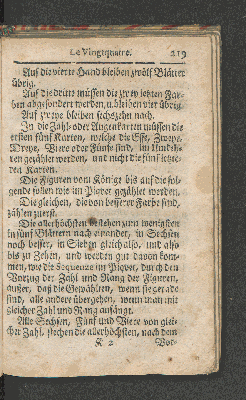 Le Vingtquatre. 219
Auf die vierte Hand bleiben zwölf Blätter
übrig.
Auf die dritte müssen die zwey letzten Far-
ben abgesondert werden, u. bleiben vier übrig.
Auf zweye bleiben sechszehn nach.
In die Zahl- oder Augenkarten müssen die
ersten fünf Karten, welche die Esse, Zweye,
Dreye, Viere oder Fünfe sind, im
gezählet werden, und nicht die fünf letzte-
ren Karten.
Die Figuren vom Könige bis auf die fol-
gende sollen wie im Piqvet gezählet werden.
Die gleichen, die von besserer Farbe sind,
zählen zuerst.
Die allerhöchsten bestehen zum wenigsten
in fünf Blättern nach einander, in Sechsen
noch besser, in Sieben gleich also, und also
bis zu Zehen, und werden gut davon kom-
men, wie die Sequenze im Piqvet, durch den
Vorzug der Zahl und Rang der Figuren,
außer, daß die Gewählten, wenn sie gerade
sind, alle andere übergehen, wenn man mit
gleicher Zahl und Rang anfängt.
Alle Sechsen, Fünf und Viere von glei-
cher Zahl, stechen die allerhöchsten, nach dem
K 2 Vor-